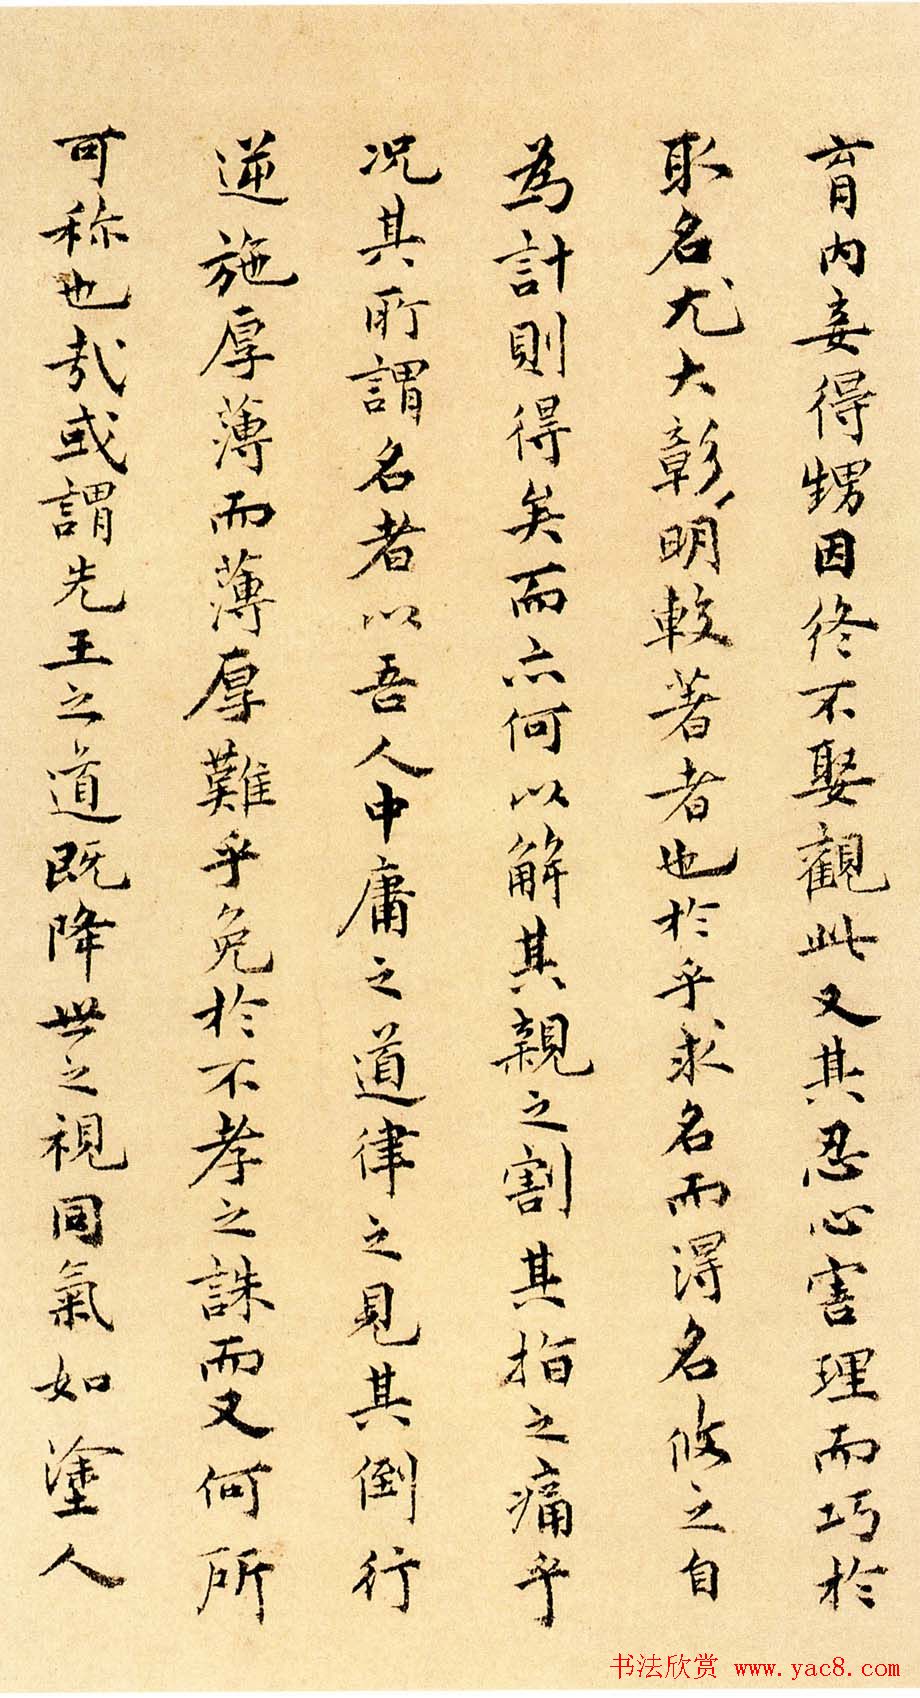 育内妾得甥因终不娶觀此又其忍心害理而巧於
取名尤大彰明較著者也於乎求名而得名攸之自
為計則得矣而亦何以解其親之割其指之痛乎
况其所謂名者以吾人中庸之道律之見其倒行
逆施厚薄而薄厚難乎免於不孝之誅而又何所
可称也哉或謂先王之道既降世之視同氣如塗人
书法欣赏 www.yac8.com